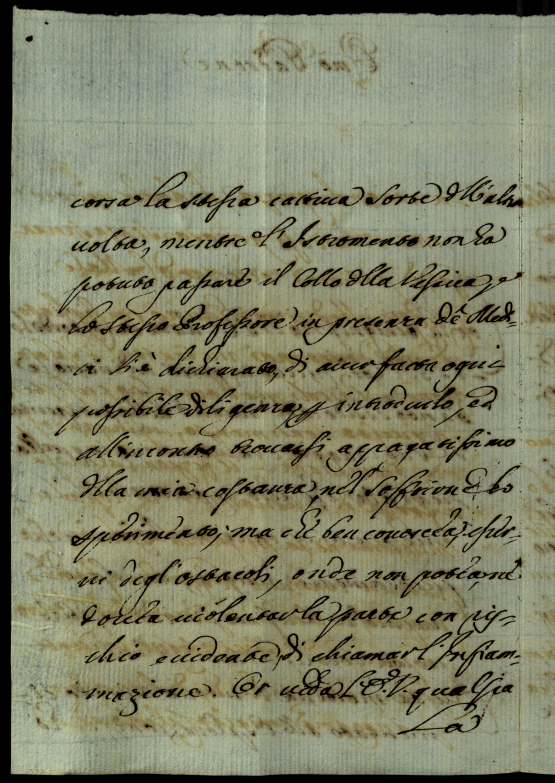 corsa la stessa cattiva sorte dell'altra
volta, mentre l'Istromento non hà
potuto passare il Collo della Vesica, e
lo stesso Professore in presenza de Medi-
ci s'è dichiarato, di aver fatta ogni
possibile diligenza p introdurlo, ed
all'incontro trovarsi appagatissimo
della mia costanza, nel soffrirne lo
sperimento; ma che ben conosceva, esser-
vi degl'ostacoli, onde non poteva, nè
doveva violentar la parte con ris-
chio evidente, di chiamar l'Infiam-
mazione. Or veda qual sia
La